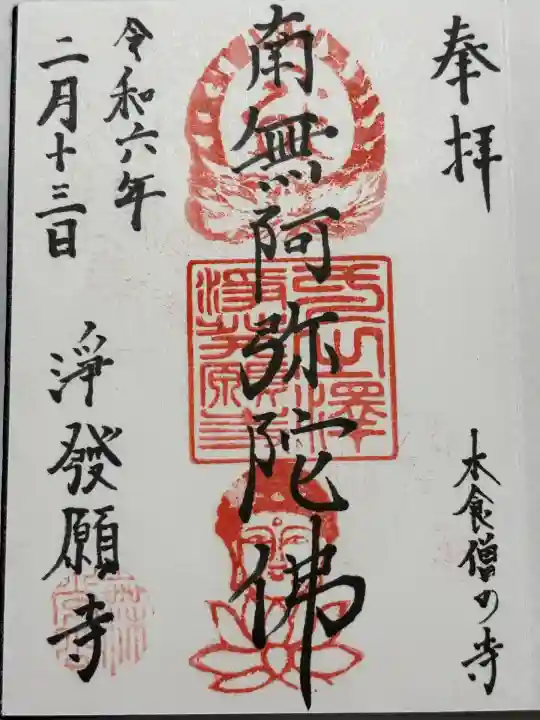 奉拝
木食僧の寺
南無阿弥陀佛
令和六年
二月十三日
淨發願寺